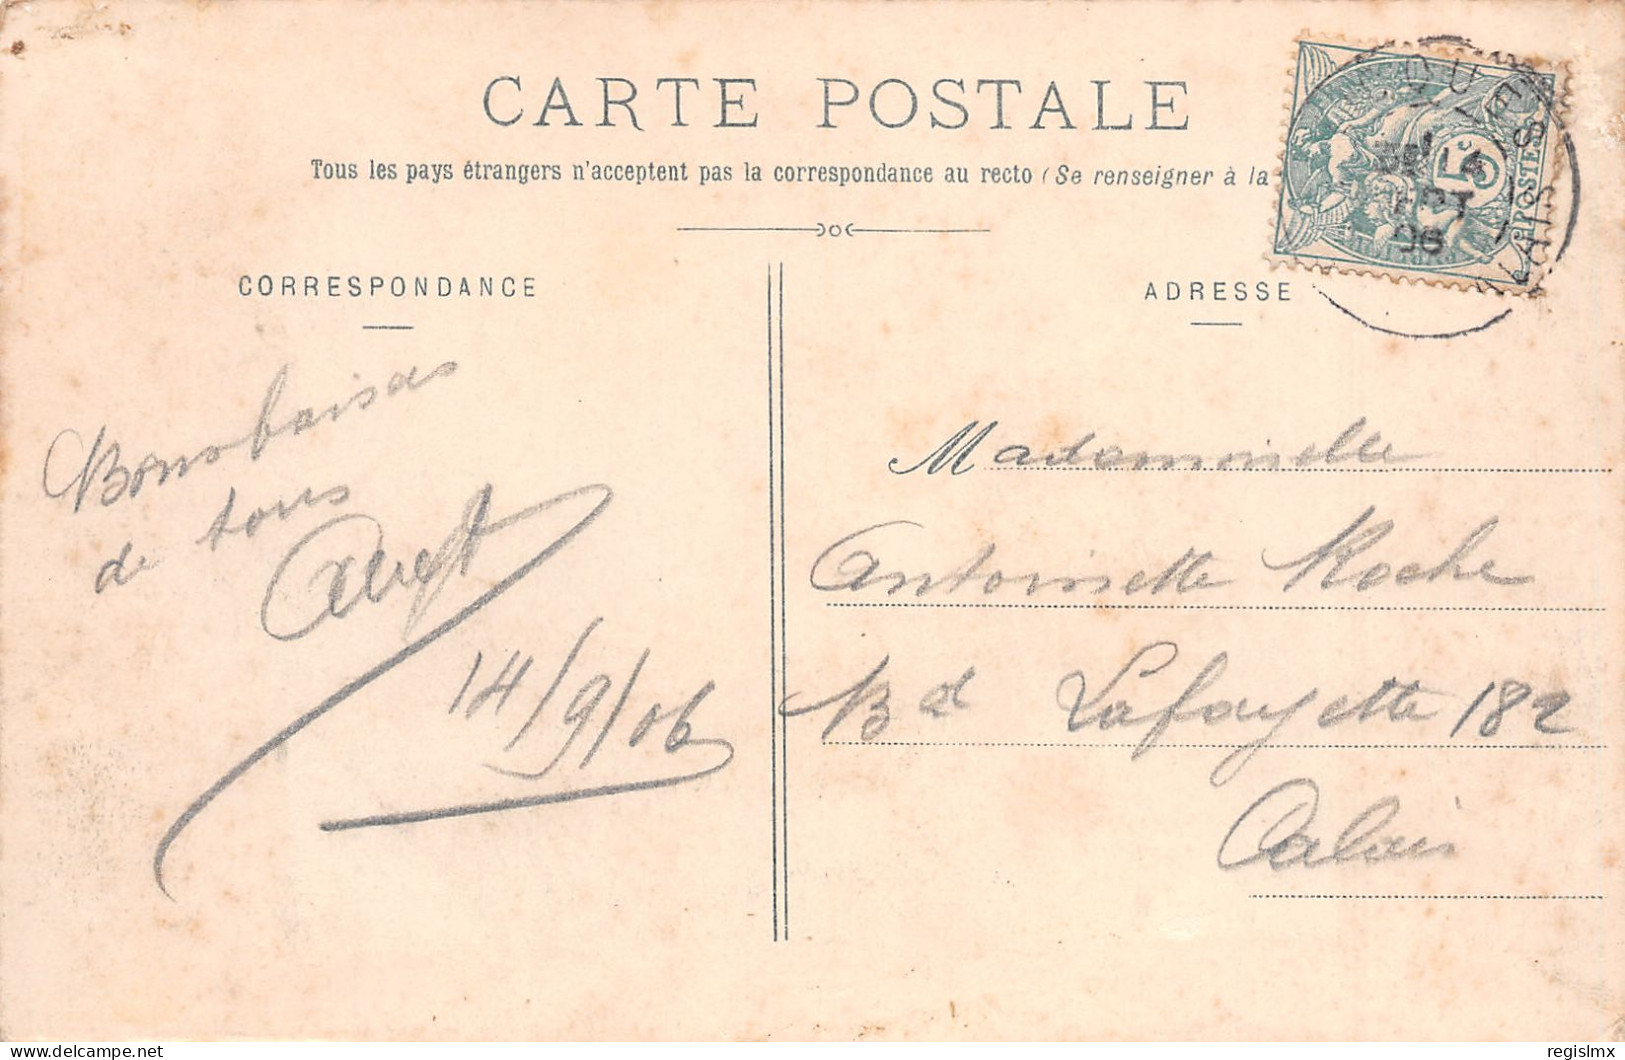 CARTE POSTALE
Tous les pays étrangers n'acceptent pas la correspondance au recto (Se renseigner à la
CORRESPONDANCE
ADRESSE
5c
POSTES
14
06
Bons baisers
de tous
Albert
14/9/06
Mademoiselle
Antoinette Roche
Bd Lafayette 182
Calais
delcampe.net
regislmx